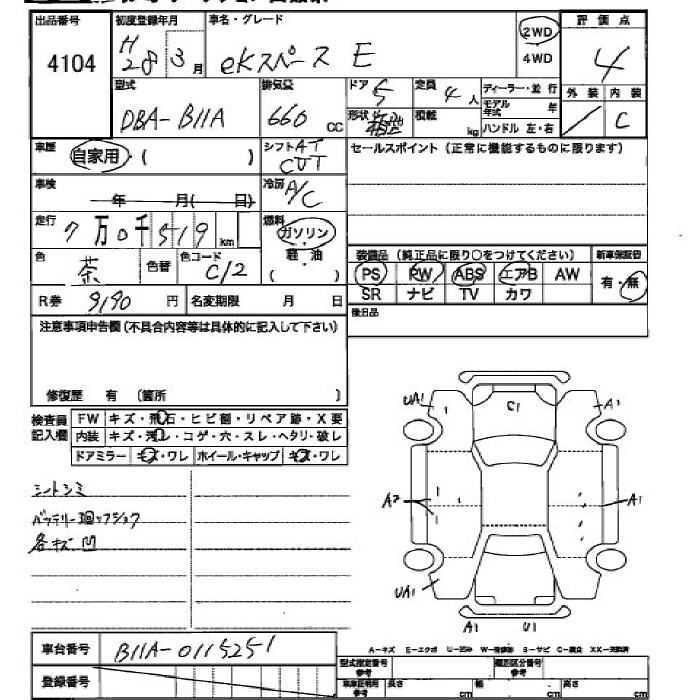 出品番号 初度登録年月 車名・グレード 2WD 評価点
4104 H28 3月 eKスペース E 4WD 4
型式 排気量 ドア 5 定員 4人 ディーラー・並行 外装 内装
DBA-B11A 660 CC 形状 箱型 積載 kg モデル年式 年 ハンドル 左・右 C
車歴 自家用 ( ) シフト AT CVT セールスポイント (正常に機能するものに限ります)
車検 年 月( 日) 冷房 A/C
走行 7万0千519km 燃料 ガソリン
色 茶 色替 色コード C12 軽・油 ( ) 装備品 (純正品に限り○をつけてください) 新車保証書
PS PW ABS エアB AW 有・無
R券 9190円 名変期限 月 日 SR ナビ TV カワ
注意事項申告欄(不具合内容等は具体的に記入して下さい) 後日品
修復歴 有 (箇所 )
UA1 C1 A1
検査員記入欄 FW キズ・飛石・ヒビ割・リペア跡・X要
内装 キズ・汚レ・コゲ・穴・スレ・ヘタリ・破レ
ドアミラー キズ・ワレ ホイール・キャップ キズ・ワレ
シートシミ
A2 A1
各キズ 凹
UA1
A1 U1
車台番号 B11A-0115251
A-キズ E-エクボ U-凹み W-補修跡 S-サビ C-腐食 XX-交換済
登録番号
型式指定番号 参考 類別区分番号 参考
車庫証明用 参考 長さ cm 幅 cm 高さ cm